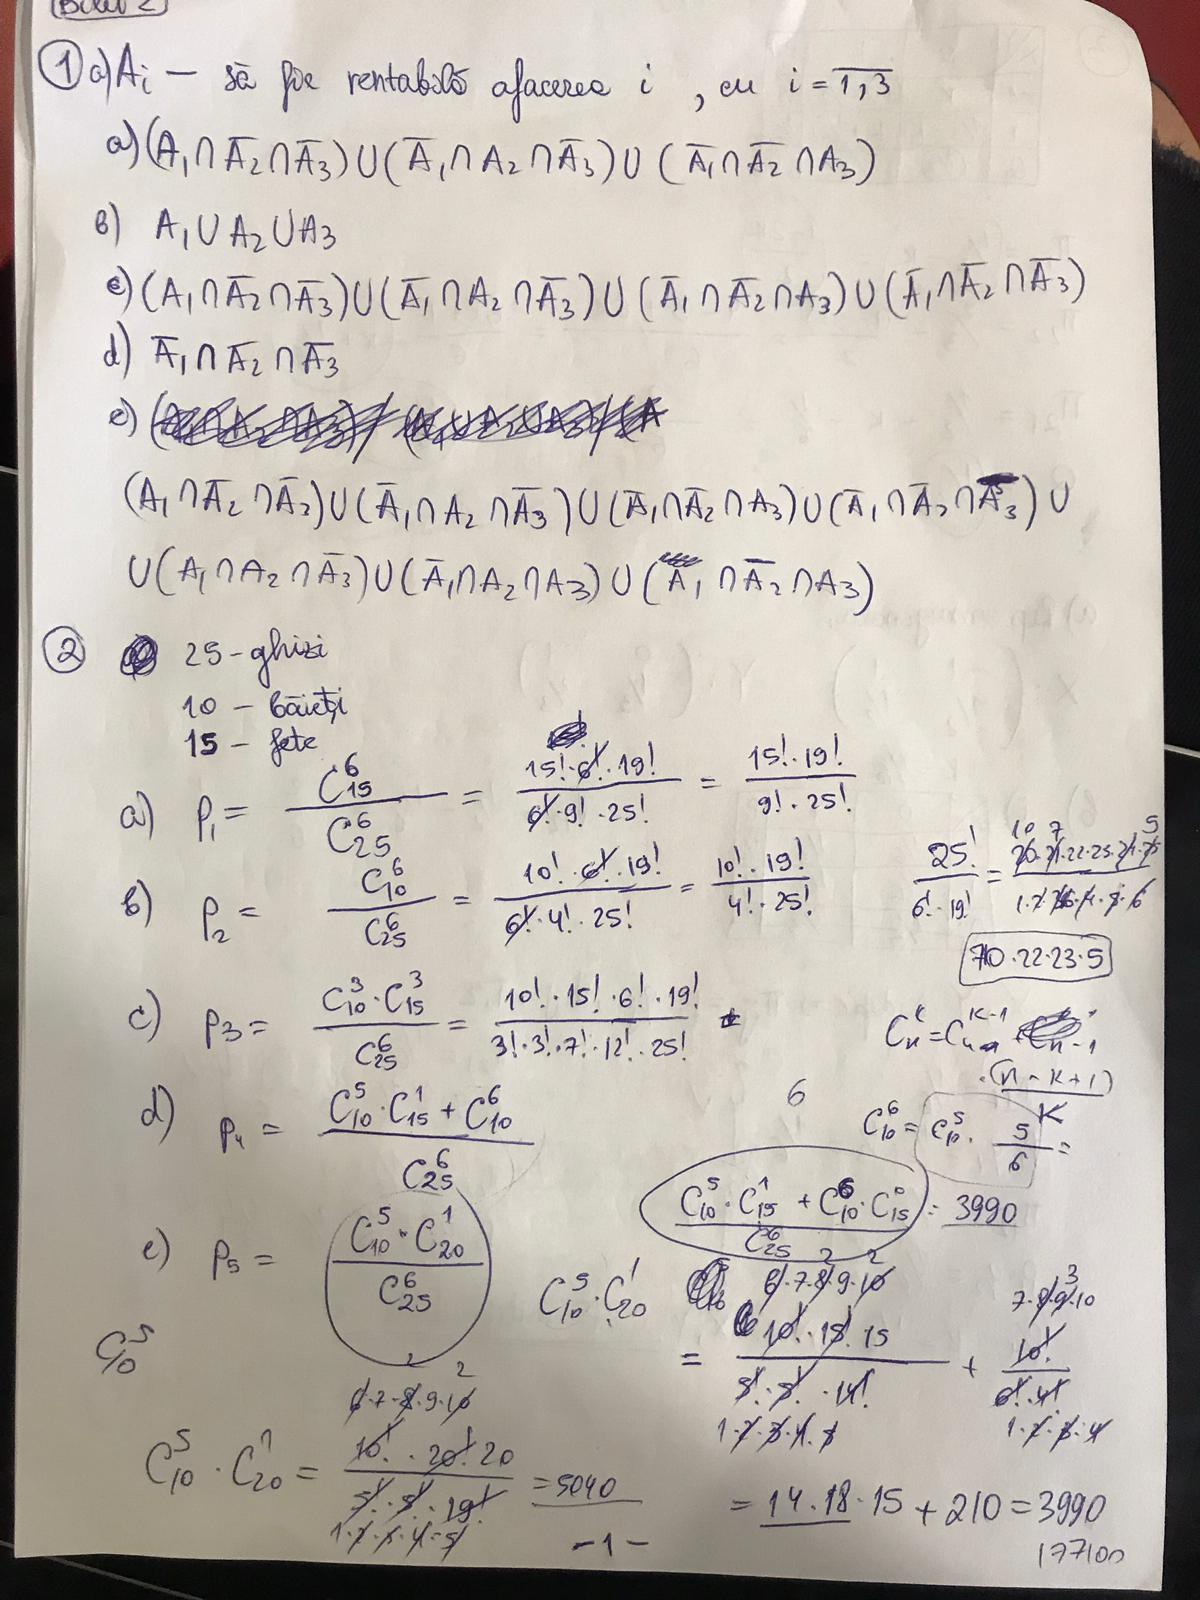 Bilet 2
① a) Aᵢ — să fie rentabilă afacerea i , cu i = 1,3
a) (A₁∩A̅₂∩A̅₃)∪(A̅₁∩A₂∩A̅₃)∪(A̅₁∩A̅₂∩A₃)
b) A₁∪A₂∪A₃
c) (A₁∩A̅₂∩A̅₃)∪(A̅₁∩A₂∩A̅₃)∪(A̅₁∩A̅₂∩A₃)∪(A̅₁∩A̅₂∩A̅₃)
d) A̅₁∩A̅₂∩A̅₃
e)
(A₁∩A̅₂∩A̅₂)∪(A̅₁∩A₂∩A̅₃)∪(A̅₁∩A̅₂∩A₃)∪(A̅₁∩A̅₂∩A̅₃)∪
∪(A₁∩A₂∩A̅₃)∪(A̅₁∩A₂∩A₃)∪(A₁∩A̅₂∩A₃)
② 25 - ghizi
10 - băieți
15 - fete
a) P₁ = C₁₅⁶ / C₂₅⁶ = 15!·6!·19! / 6!·9!·25! = 15!·19! / 9!·25!
b) P₂ = C₁₀⁶ / C₂₅⁶ = 10!·6!·19! / 6!·4!·25! = 10!·19! / 4!·25!
25! / 6!·19! = 20·21·22·23·24·25 / 1·2·3·4·5·6
710·22·23·5
c) P₃ = C₁₀³·C₁₅³ / C₂₅⁶ = 10!·15!·6!·19! / 3!·3!·7!·12!·25!
·(n-k+1) / K
d) P₄ = C₁₀⁵·C₁₅¹ + C₁₀⁶ / C₂₅⁶
6
C₁₀⁶ = C₁₀⁵ · 5 / 6 =
C₁₀⁵·C₁₅¹ + C₁₀⁶·C₁₅⁰ / C₂₅⁶ = 3990
e) P₅ = C₁₀⁵·C₂₀¹ / C₂₅⁶
C₁₀⁵·C₂₀¹
6·7·8·9·10
7·8·9·10
= 10!·15!·15 / 5!·5!·14! + 10! / 6!·4!
1·2·3·4·5
1·2·3·4
C₁₀⁵
6·7·8·9·10
C₁₀⁵·C₂₀¹ = 10!·20!·20 / 5!·5!·19! = 5040
1·2·3·4·5
= 14·18·15 + 210 = 3990
177100
-1-